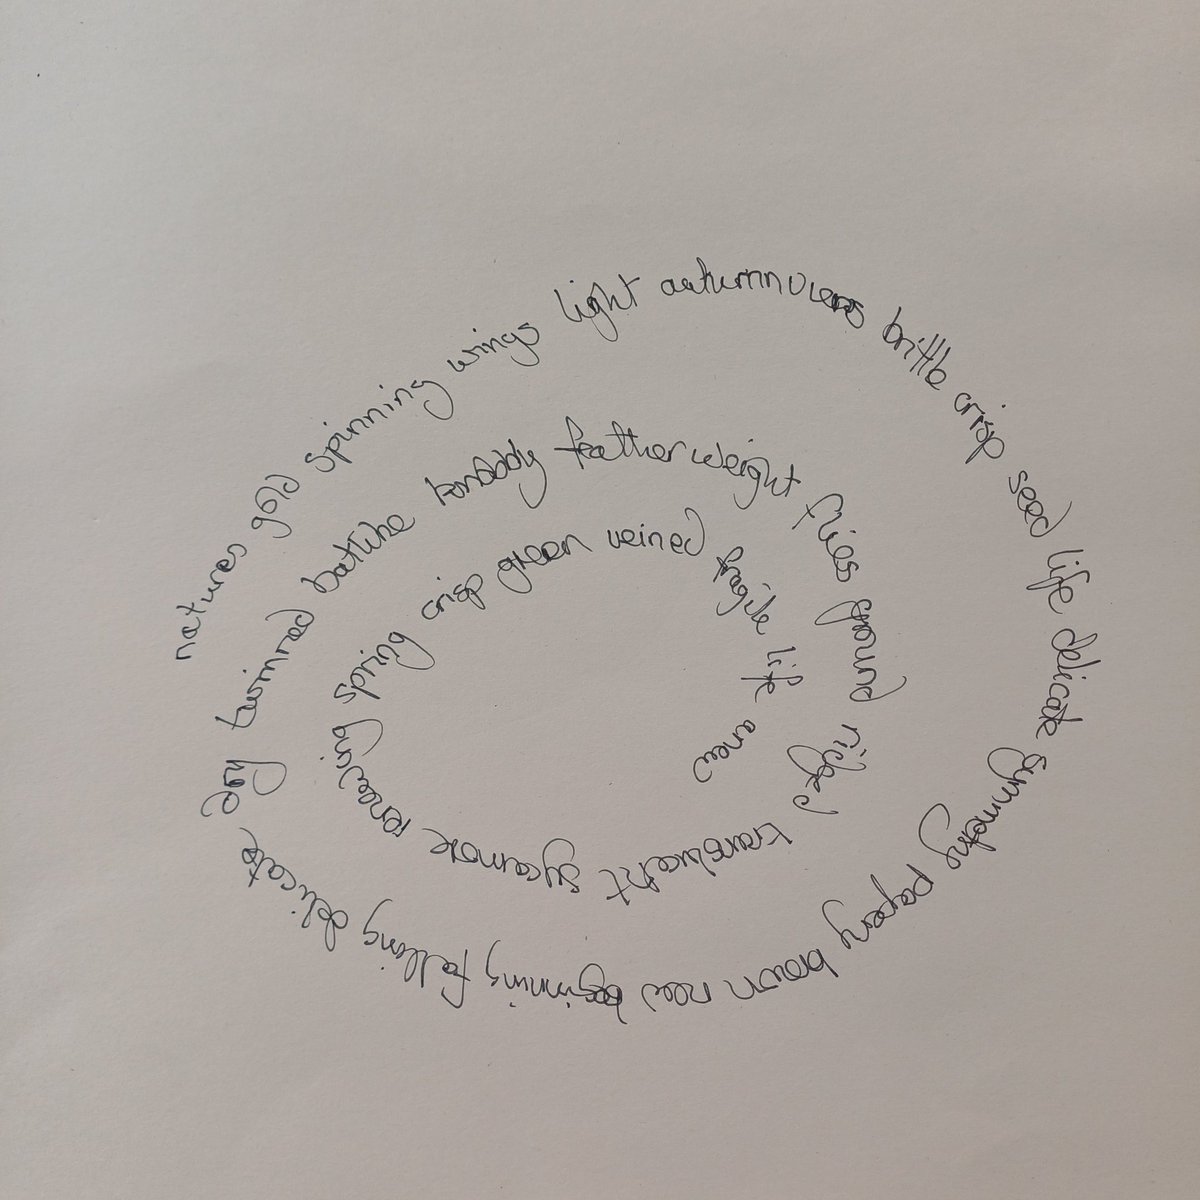 natures gold spinning wings light autumn brittle crisp seed life delicate symmetry papery brown new beginning falling delicate dry twinned batlike feather weight flies ground ridged translucent sycamore renewing spring crisp green veined fragile life anew